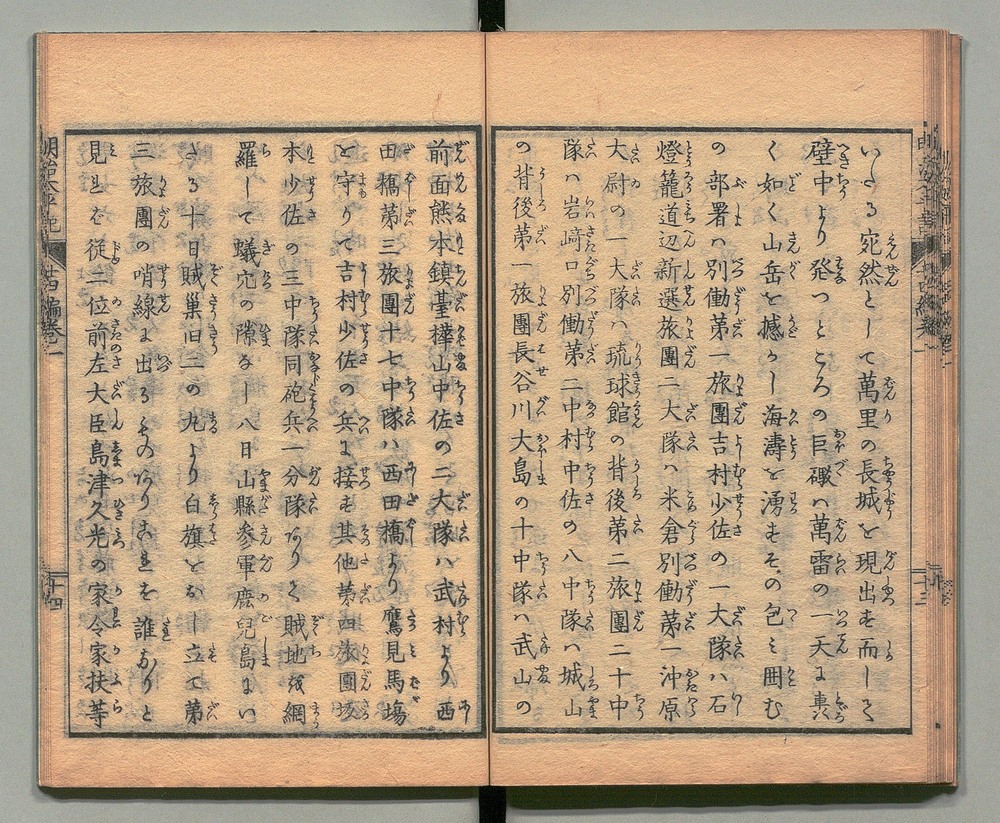 いたる宛然として萬里の長城を現出せ而して
壁中より発つところの巨礮ハ萬雷の一天に轟
く如く山岳を撼かし海濤を湧もその包ミ囲む
の部署ハ別働第一旅團吉村少佐の一大隊ハ石
燈籠道辺新選旅團二大隊ハ米倉別働第一沖原
大尉の一大隊ハ琉球館の背後第二旅團二十中
隊ハ岩﨑口別働第二中村中佐の八中隊ハ城山
の背後第一旅團長谷川大島の十中隊ハ武山の
前面熊本鎮臺樺山中佐の二大隊ハ武村より西
田橋第三旅團十七中隊ハ西田橋より鷹見馬塲
を守りて吉村少佐の兵に接も其他第四旅團坂
本少佐の三中隊同砲兵一分隊ありて賊地を網
羅して蟻穴の隙なし八日山縣参軍鹿兒島にい
たる十日賊巣旧二の丸より白旗をおし立て第
三旅團の哨線に出るものありこれを誰なりと
見れを従二位前左大臣島津久光の家令家扶等
明治太平記
廿四編巻一
十四
十三